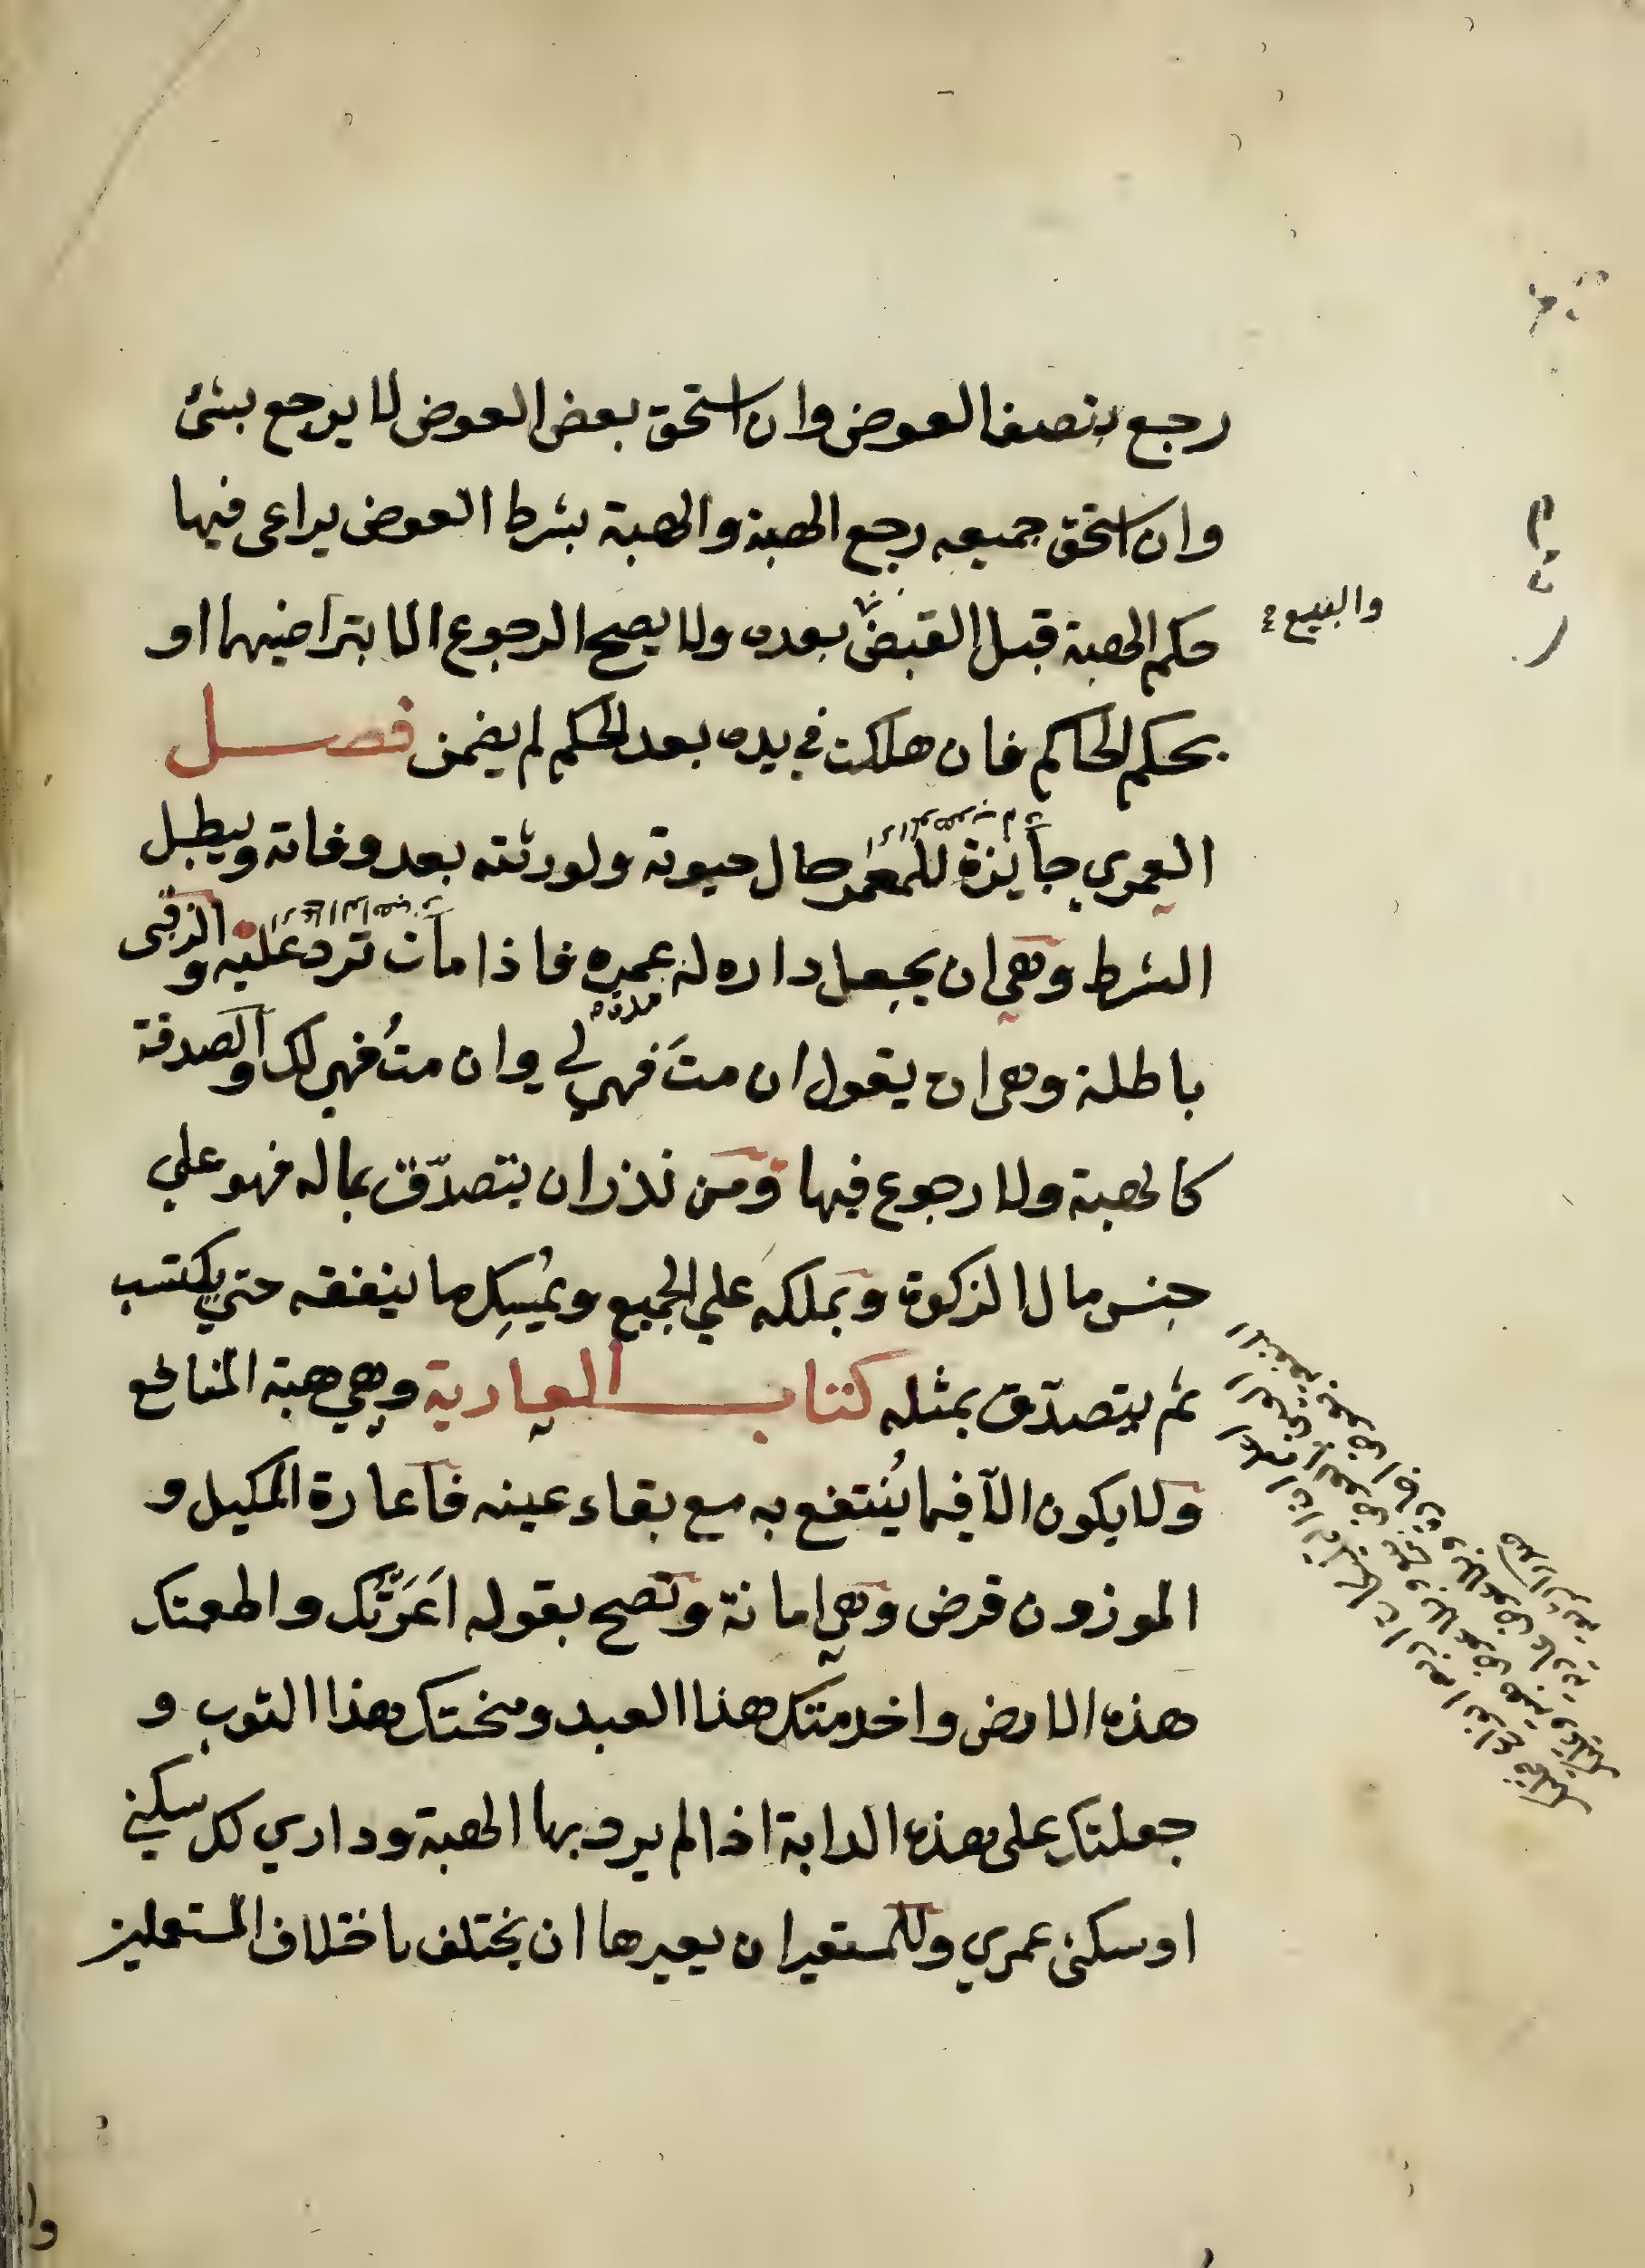 رجع بنصف العوض وان استحق بعض العوض لا يرجع بشئ
وان استحق جميعه رجع الهبة والهبة بشرط العوض يراعى فيها
حكم الهبة قبل القبض بعده ولا يصح الرجوع الا بتراضيهما او
والبيع
بحكم الحاكم فان هلكت في يده بعد الحكم لم يضمن فصل
العمري جايزة للمعمر حال حيوته ولورثته بعد وفاته ويبطل
الشرط وهي ان يجعل داره له عمره فاذا مات ترد عليه والرقبى
باطلة وهي ان يقول ان متَ فهي لي وان متُ فهي لك والصدقة
كالهبة ولا رجوع فيها ومن نذر ان يتصدّق بماله فهو علي
جنس مال الزكوة وبملكه علي الجميع ويُمسِك ما ينفقه حتي يكتسب
ثم يتصدّق بمثله كتاب العارية وهي هبة المنافع
ولا يكون الّا فيما يُنتفع به مع بقاء عينه فاعارة المكيل و
الموزون قرض وهي امانة وتصح بقوله اَعَرْتُك واطعمتك
هذه الارض واخدمتك هذا العبد ومنحتك هذا الثوب و
حملتك على هذه الدابة اذا لم يرد بها الهبة وداري لك سكني
او سكنى عمري وللمستعير ان يعيرها ان يختلف باختلاف المستعملين